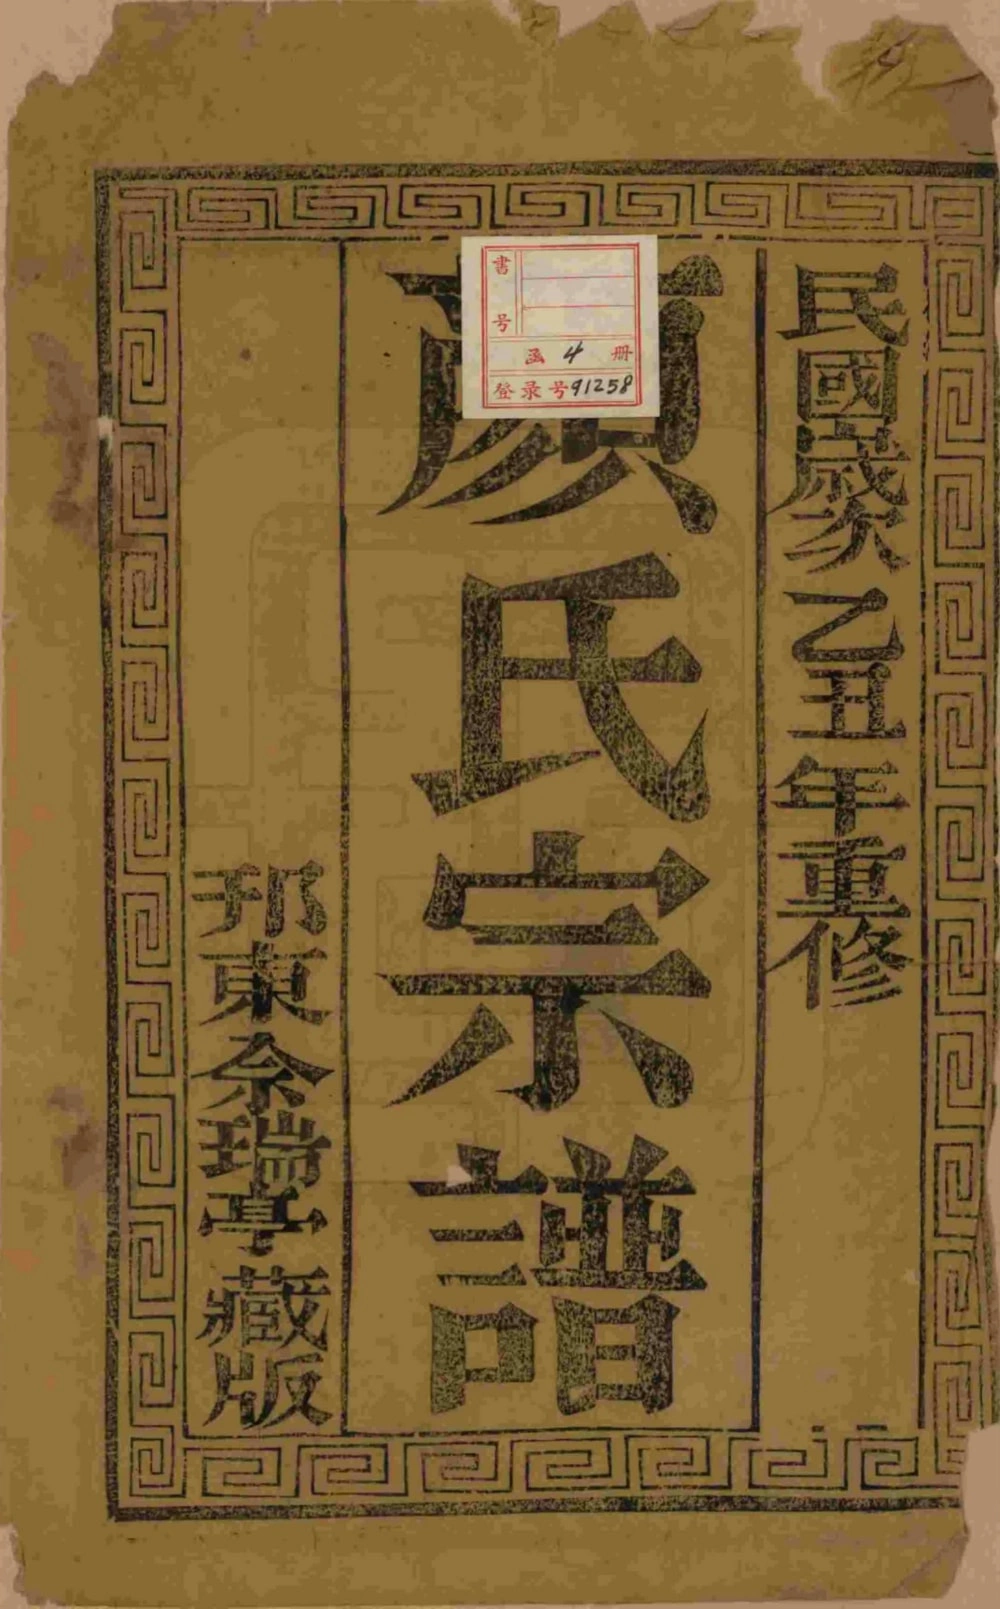 民國歲次乙丑年重修
顏氏宗譜
邘東佘瑞亭藏版
書号
函 4 册
登录号91258